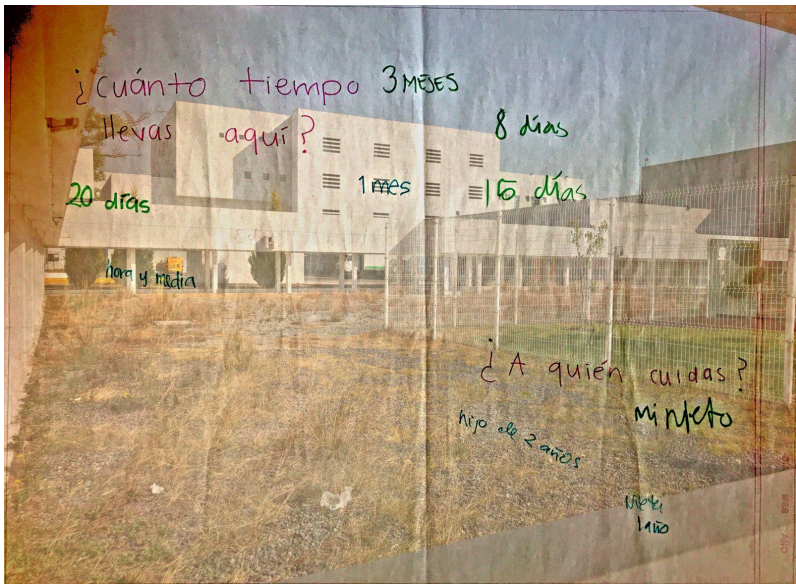 ¿Cuánto tiempo
llevas aquí?
3 MESES
8 días
20 días
1 mes
15 días
hora y media
¿A quién cuidas?
mi nieto
hijo de 2 años
Nieta
1 año